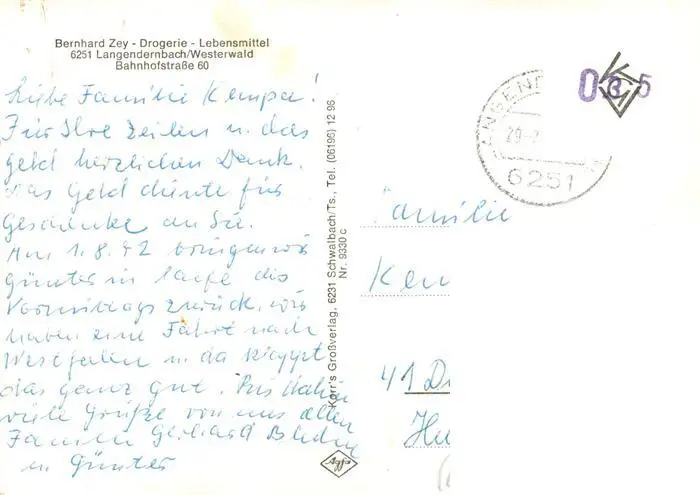 Bernhard Zey - Drogerie - Lebensmittel
6251 Langendernbach/Westerwald
Bahnhofstraße 60
Liebe Familie Kempa!
Für Ihre Zeilen u. das
Geld herzlichen Dank.
Das Geld diente für
Geschenke an Sie.
Am 1.8.42 bringen wir
Günter in Laufe des
Vormittags zurück, wir
haben eine Fahrt nach
Westfalen u. da klappt
das ganz gut. Bis dahin
viele Grüße von uns allen
Familie Gerhard
u. Günter
Korr's Großverlag, 6231 Schwalbach/Ts., Tel. (06196) 12 96
Nr. 9330 c
Agfa
6251
Familie
Ken
41 D